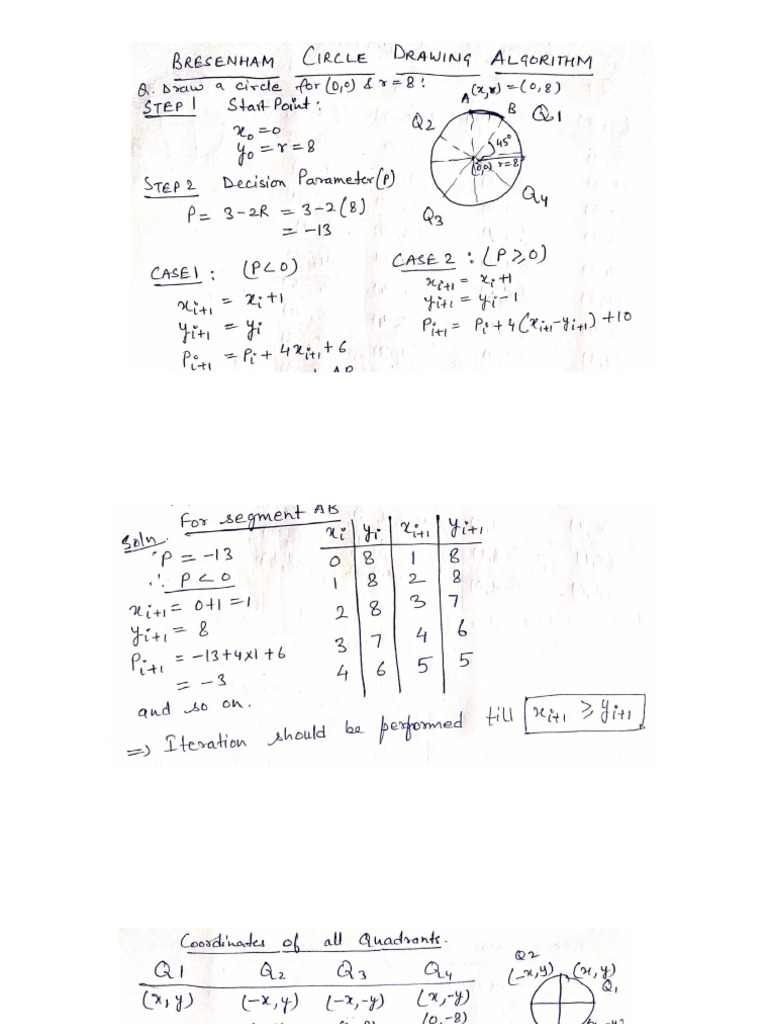 BRESENHAM CIRCLE DRAWING ALGORITHM
Q. Draw a circle for (0,0) & r=8!
STEP 1 Start Point:
x₀=0
y₀=r=8
A (x,r)=(0,8)
B
Q2
Q1
45°
(0,0) r=8
Q3
Q4
STEP 2 Decision Parameter(P)
P= 3-2R = 3-2(8)
= -13
CASE 1: (P<0)
xᵢ₊₁ = xᵢ+1
yᵢ₊₁ = yᵢ
Pᵢ₊₁ = Pᵢ + 4xᵢ₊₁ + 6
CASE 2: (P≥0)
xᵢ₊₁ = xᵢ+1
yᵢ₊₁ = yᵢ-1
Pᵢ₊₁ = Pᵢ+4(xᵢ₊₁-yᵢ₊₁)+10
For segment AB
Soln.
∵ P = -13
∴ P<0
xᵢ₊₁ = 0+1 = 1
yᵢ₊₁ = 8
Pᵢ₊₁ = -13+4x1+6
= -3
and so on.
xᵢ yᵢ xᵢ₊₁ yᵢ₊₁
0 8 1 8
1 8 2 8
2 8 3 7
3 7 4 6
4 6 5 5
=> Iteration should be performed till xᵢ₊₁ ≥ yᵢ₊₁
Coordinates of all Quadrants.
Q1 Q2 Q3 Q4
(x,y) (-x,y) (-x,-y) (x,-y)
(0,-8)
Q2
(-x,y) (x,y)
Q1